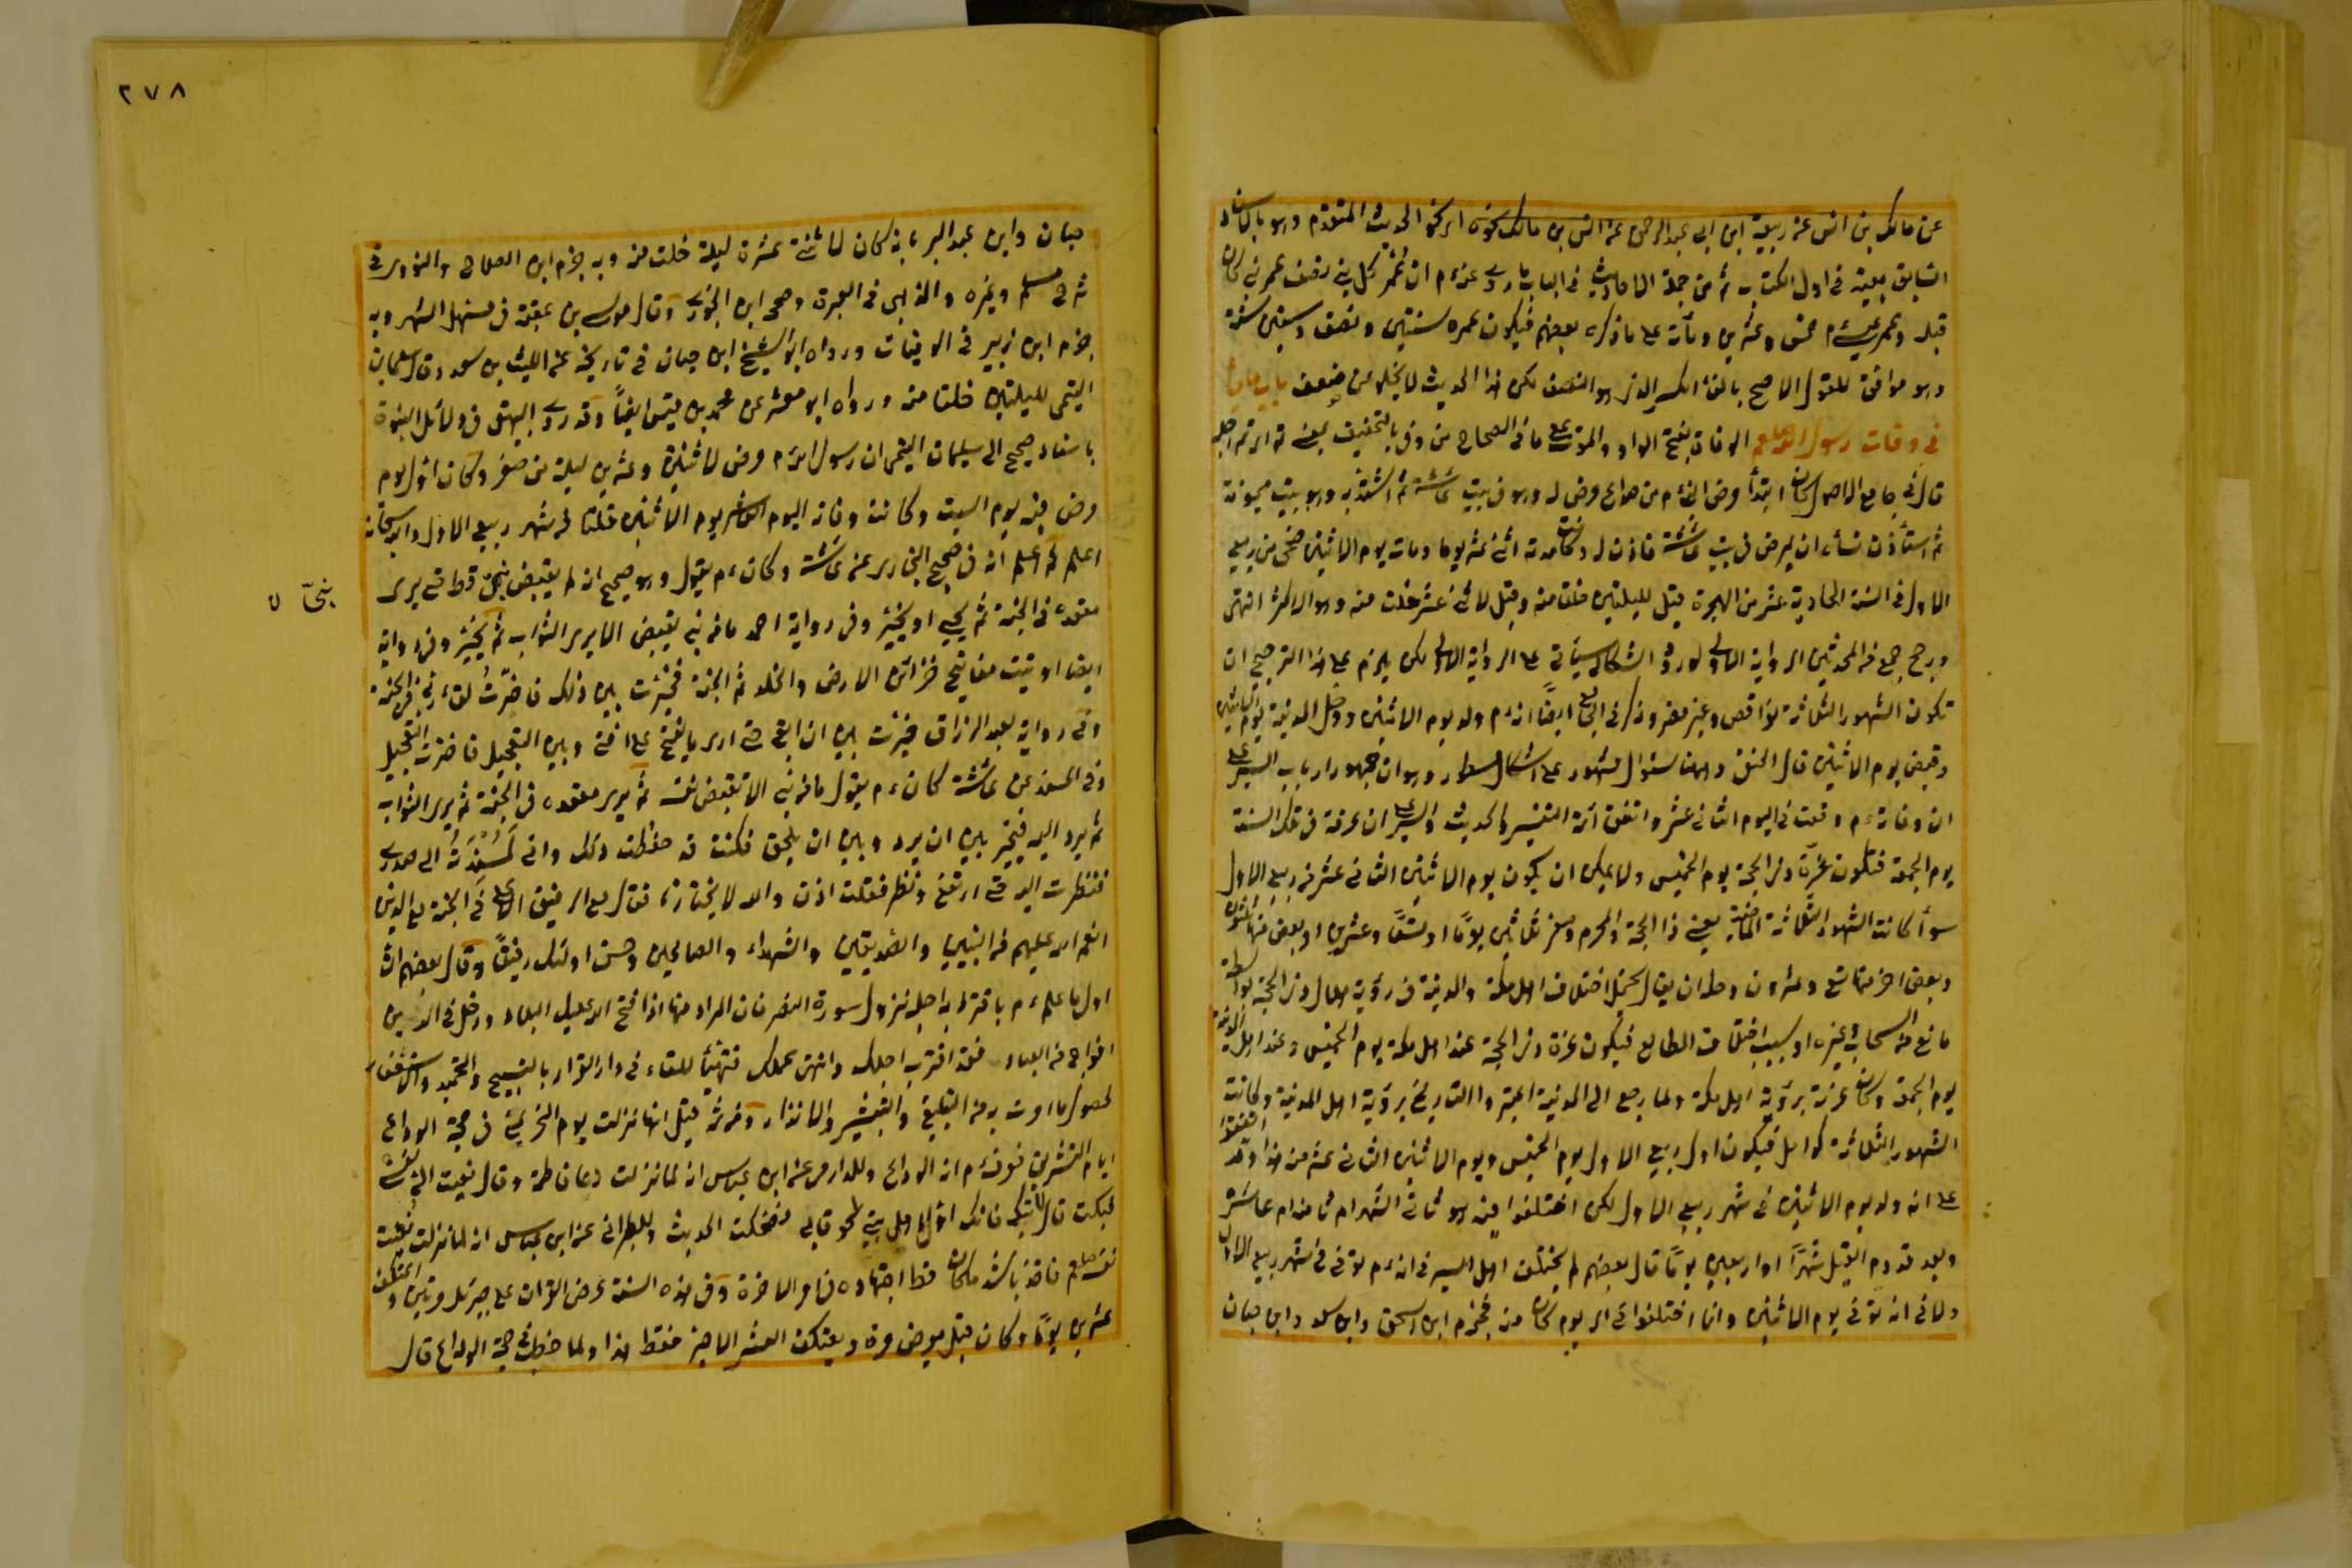 عن مالك بن انس عن ربيعة ابن ابى عبد الرحمن عن انس بن مالك نحوه اى نحو الحديث المتقدم وهو باسناد
السابق بعينه فى اول الكتاب ثم من جملة الاحاديث فى الباب ما روى عنه ءم ان عُمر كل نبى نصف عمر نبى كان
قبله وعمر عيسى ءم خمس وعشرين ومأة على ما ذكره بعضهم فيكون عمره سنتين ونصف وستين سنة
وهو موافق للقول الاصح بالغاء الكسر الذى هو النصف لكن هذا الحديث لا يخلو عن ضعف باب ما جاء
فى وفات رسول الله صلعم الوفات بفتح الواو والموت على ما فى الصحاح من وفى بالتخفيف بمعنى تم اى تم اجله
قال فى جامع الاصول كان ابتدأ مرض النبى ءم من صداع عرض له وهو فى بيت عائشة ثم اشتد به وهو ببيت ميمونة
ثم استأذن نسأءه ان يمرض فى بيت عائشة فاذن له وكانت مدته اثنى عشر يوما ومات يوم الاثنين ضحى من ربيع
الاول فى السنة الحادية عشر من الهجرة قيل لليلتين خلتا منه وقيل لاثنى عشر خلت منه وهو الاكثر انتهى
ورجح جمع من المحدثين الرواية الاولى لورود اشكال سيأتى على الرواية الاخرى لكن يلزم على هذا الترجيح ان
تكون الشهور الثلاثة نواقص وغير مضر وذكر فى الجامع ايضًا انه ءم ولد يوم الاثنين ودخل المدينة يوم الاثنين
وقبض يوم الاثنين قال الحنفى وههنا سئوال مشهور على اشكال مسطور وهو ان جمهور ارباب السير على
ان وفاته ءم وقعت فى اليوم الثانى عشر واتفق ائمة التفسير والحديث والسير على ان عرفة فى تلك السنة
يوم الجمعة فتكون غرّة ذى الحجة يوم الخميس ولا يمكن ان يكون يوم الاثنين الثانى عشر من ربيع الاول
سوأ كانت الشهور الثّلاثة الماضية يعنى ذا الحجة والمحرم وصفر ثلاثين يومًا او تسعًا وعشرين او بعض منها ثلثون
وبعض اخر منها تسع وعشرون وحله ان يقال يحتمل اختلاف اهل مكة والمدينة فى رؤية هلال ذى الحجة بواسطة
مانع من السحاب وغيره او بسبب اختلاف المطالع فيكون غرة ذى الحجة عند اهل مكة يوم الخميس وعند اهل المدينة
يوم الجمعة وكان عرفة برؤية اهل مكة ولما رجع الى المدينة اعتبروا التاريخ برؤية اهل المدينة وكانت
الشهور الثلاثة كوامل فيكون اول ربيع الاول يوم الخميس ويوم الاثنين الثانى عشر منه هذا وقد اتفقوا
على انه ولد يوم الاثنين فى شهر ربيع الاول لكن اختلفوا فيه هو ثانى الشهر ام ثامنه ام عاشره
وبعد قدوم الفيل شهرًا او اربعين يومًا قال بعضهم لم يختلف اهل السير فى انه ءم توفى فى شهر ربيع الاول
ولا فى انه توفى يوم الاثنين وانما اختلفوا فى اى يوم كان منه فجزم ابن اسحق وابن سعد وابن حبان
٢٧٨
حبان وابن عبد البر بانه كان لاثنتى عشرة ليلة خلت منه وبه جزم ابن الصلاح والنووى فى
شرح مسلم وغيره والذهبى فى العبر وصححه ابن الجوزى وقال موسى بن عقبة فى مستهل الشهر وبه
جزم ابن زبير فى الوفيات ورواه ابو الشيخ ابن حبان فى تاريخه عن الليث بن سعد وقال سليمان
التيمى لليلتين خلتا منه ورواه ابو معشر عن محمد بن قيس ايضًا وقد روى البيهقى فى دلائل النبوة
باسناد صحيح الى سليمان التيمى ان رسول الله ءم مرض لاثنين وعشرين ليلة من صفر وكان اول يوم
مرض فيه يوم السبت وكانت وفاته اليوم العاشر يوم الاثنين خلتا من شهر ربيع الاول والله سبحانه
اعلم ثم اعلم انه فى صحيح البخارى عن عائشة وكان ءم يقول وهو صحيح انه لم يقبض نبىّ قط حتى يرى
نبىّ
مقعده فى الجنة ثم يحيى او يخيّر وفى رواية احمد ما من نبى يقبض الا يرى الثواب ثم يخيّر وفى رواية
ايضا اوتيت مفاتيح خزائن الارض والخلد ثم الجنة فخيّرت بين ذلك فاخترتُ لقاء ربى والجنة
وفى رواية عبد الرزاق خيرت بين ان ابقى حتى ارى ما يفتح على امتى وبين التعجيل فاخترت التعجيل
وفى المسند عن عائشة كان ءم يقول ما من نبى الا تقبض نفسه ثم يرى مقعده فى الجنة ثم يرى الثواب
ثم يرد اليه فيخير بين ان يرد وبين ان يلحق فكنت قد حفظت ذلك وانى لمسندته الى صدرى
فنظرت اليه حتى ارتفع ونظر فقلت اذن والله لا يختارنا فقال مع الرفيق الاعلى فى الجنة مع الذين
انعم الله عليهم من النبيين والصّديقين والشهداء والصالحين وحسن اولئك رفيقًا وقال بعضهم ان
اول ما علم ءم باقتراب اجله نزول سورة النصر فان المراد منها اذا فتح الله عليك البلاد ودخل فى الدين
افواج من العباد فقد اقترب اجلك وانتهى عملك فتهيّأ للقاء فى دار القرار بالتسبيح والتحميد والاستغفار
لحصول ما امرت به من التبليغ والتبشير والانذار ومن ثم قيل انها نزلت يوم النحر بمنى فى حجة الوداع
ايام التشريق فعرف ءم انه الوداع وللدارمى عن ابن عباس انه لما نزلت دعا فاطمة وقال نعيت الىّ نفسى
فبكت قال لا تبكى فانك اول اهل بيتى لحوقا بى فضحكت الحديث وللطبرانى عن ابن عباس انه لما نزلت نُعيت
نفسه صلعم فاخذ باشد ما كان قط اجتهاده فى امر الاخرة وفى هذه السنة عرض القران على جبرئل مرتين واعتكف
عشرين يومًا وكان قبل يعرض مرة ويعتكف العشر الاخير فقط هذا ولما خطب فى حجة الوداع قال